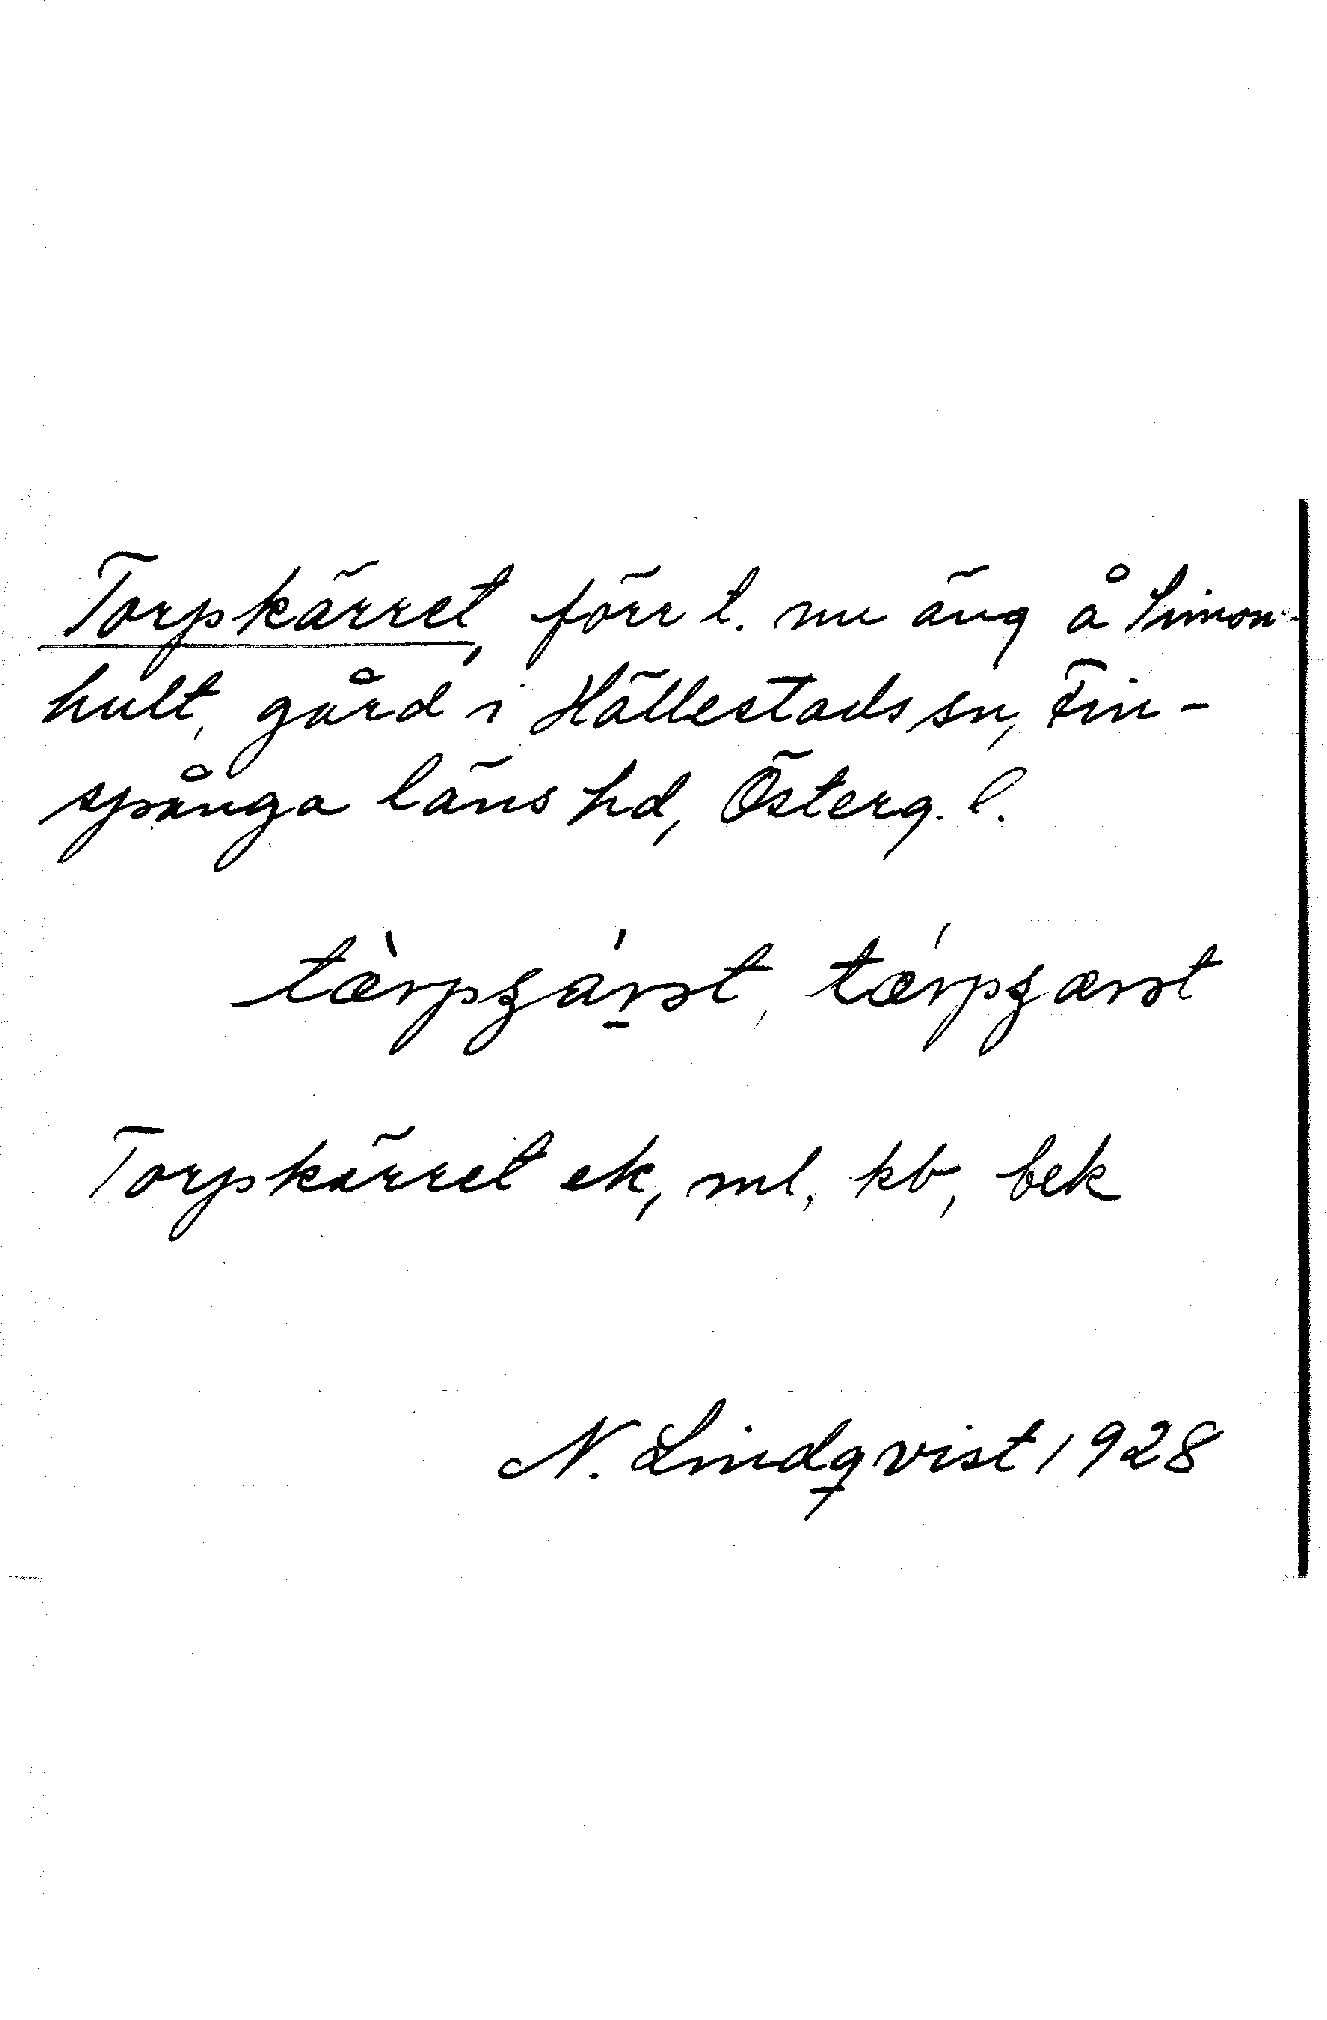 Torpkärret, förr t. nu äng å Simon-
hult, gård i Hällestads sn, Fin-
spånga läns hd, Österg. l.
Torpkärret ek, ml, kb, bek
N. Lindqvist 1928